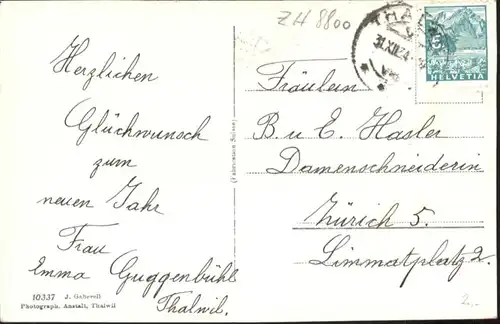 ZH 8800
THAL
31.XII.
HELVETIA
Herzlichen
Glückwunsch
zum
neuen Jahr
Frau
Emma Guggenbühl
Thalwil.
10337 J. Gaberell
Photograph. Anstalt, Thalwil
(Fabrication Suisse)
Fräulein
B. u E. Hasler
Damenschneiderin
Zürich 5.
Limmatplatz 2.
2,-